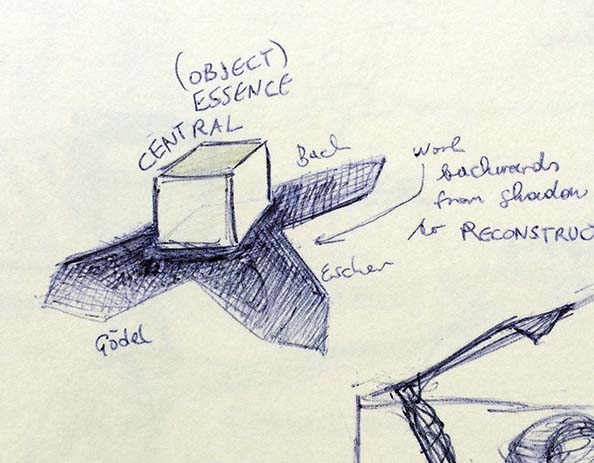 (OBJECT)
ESSENCE
CENTRAL
Bach
Work
backwards
from shadow
to RECONSTRUC
Escher
Gödel